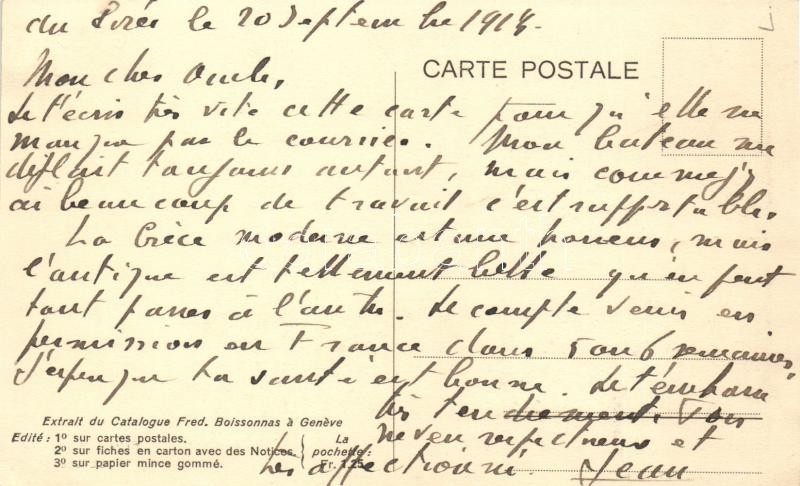 du Pirée le 20 Septembre 1918.
CARTE POSTALE
Mon cher Oncle,
Je t'écris très vite cette carte pour qu'elle ne
manque pas le courrier. Mon bateau me
déplait toujours autant, mais comme j'y
ai beaucoup de travail c'est supportable.
La Grèce moderne est une horreur, mais
l'antique est tellement belle qu'on peut
tout passer à l'autre. Je compte venir en
permission en France dans 5 ou 6 semaines.
J'espère que ta santé est bonne. Je t'embrasse
très tendrement. Ton
neveu respectueux et
très affectionné. Jean
Extrait du Catalogue Fred. Boissonnas à Genève
Edité : 1º sur cartes postales.
2º sur fiches en carton avec des Notices.
3º sur papier mince gommé.
La
pochette :
Fr. 1.25